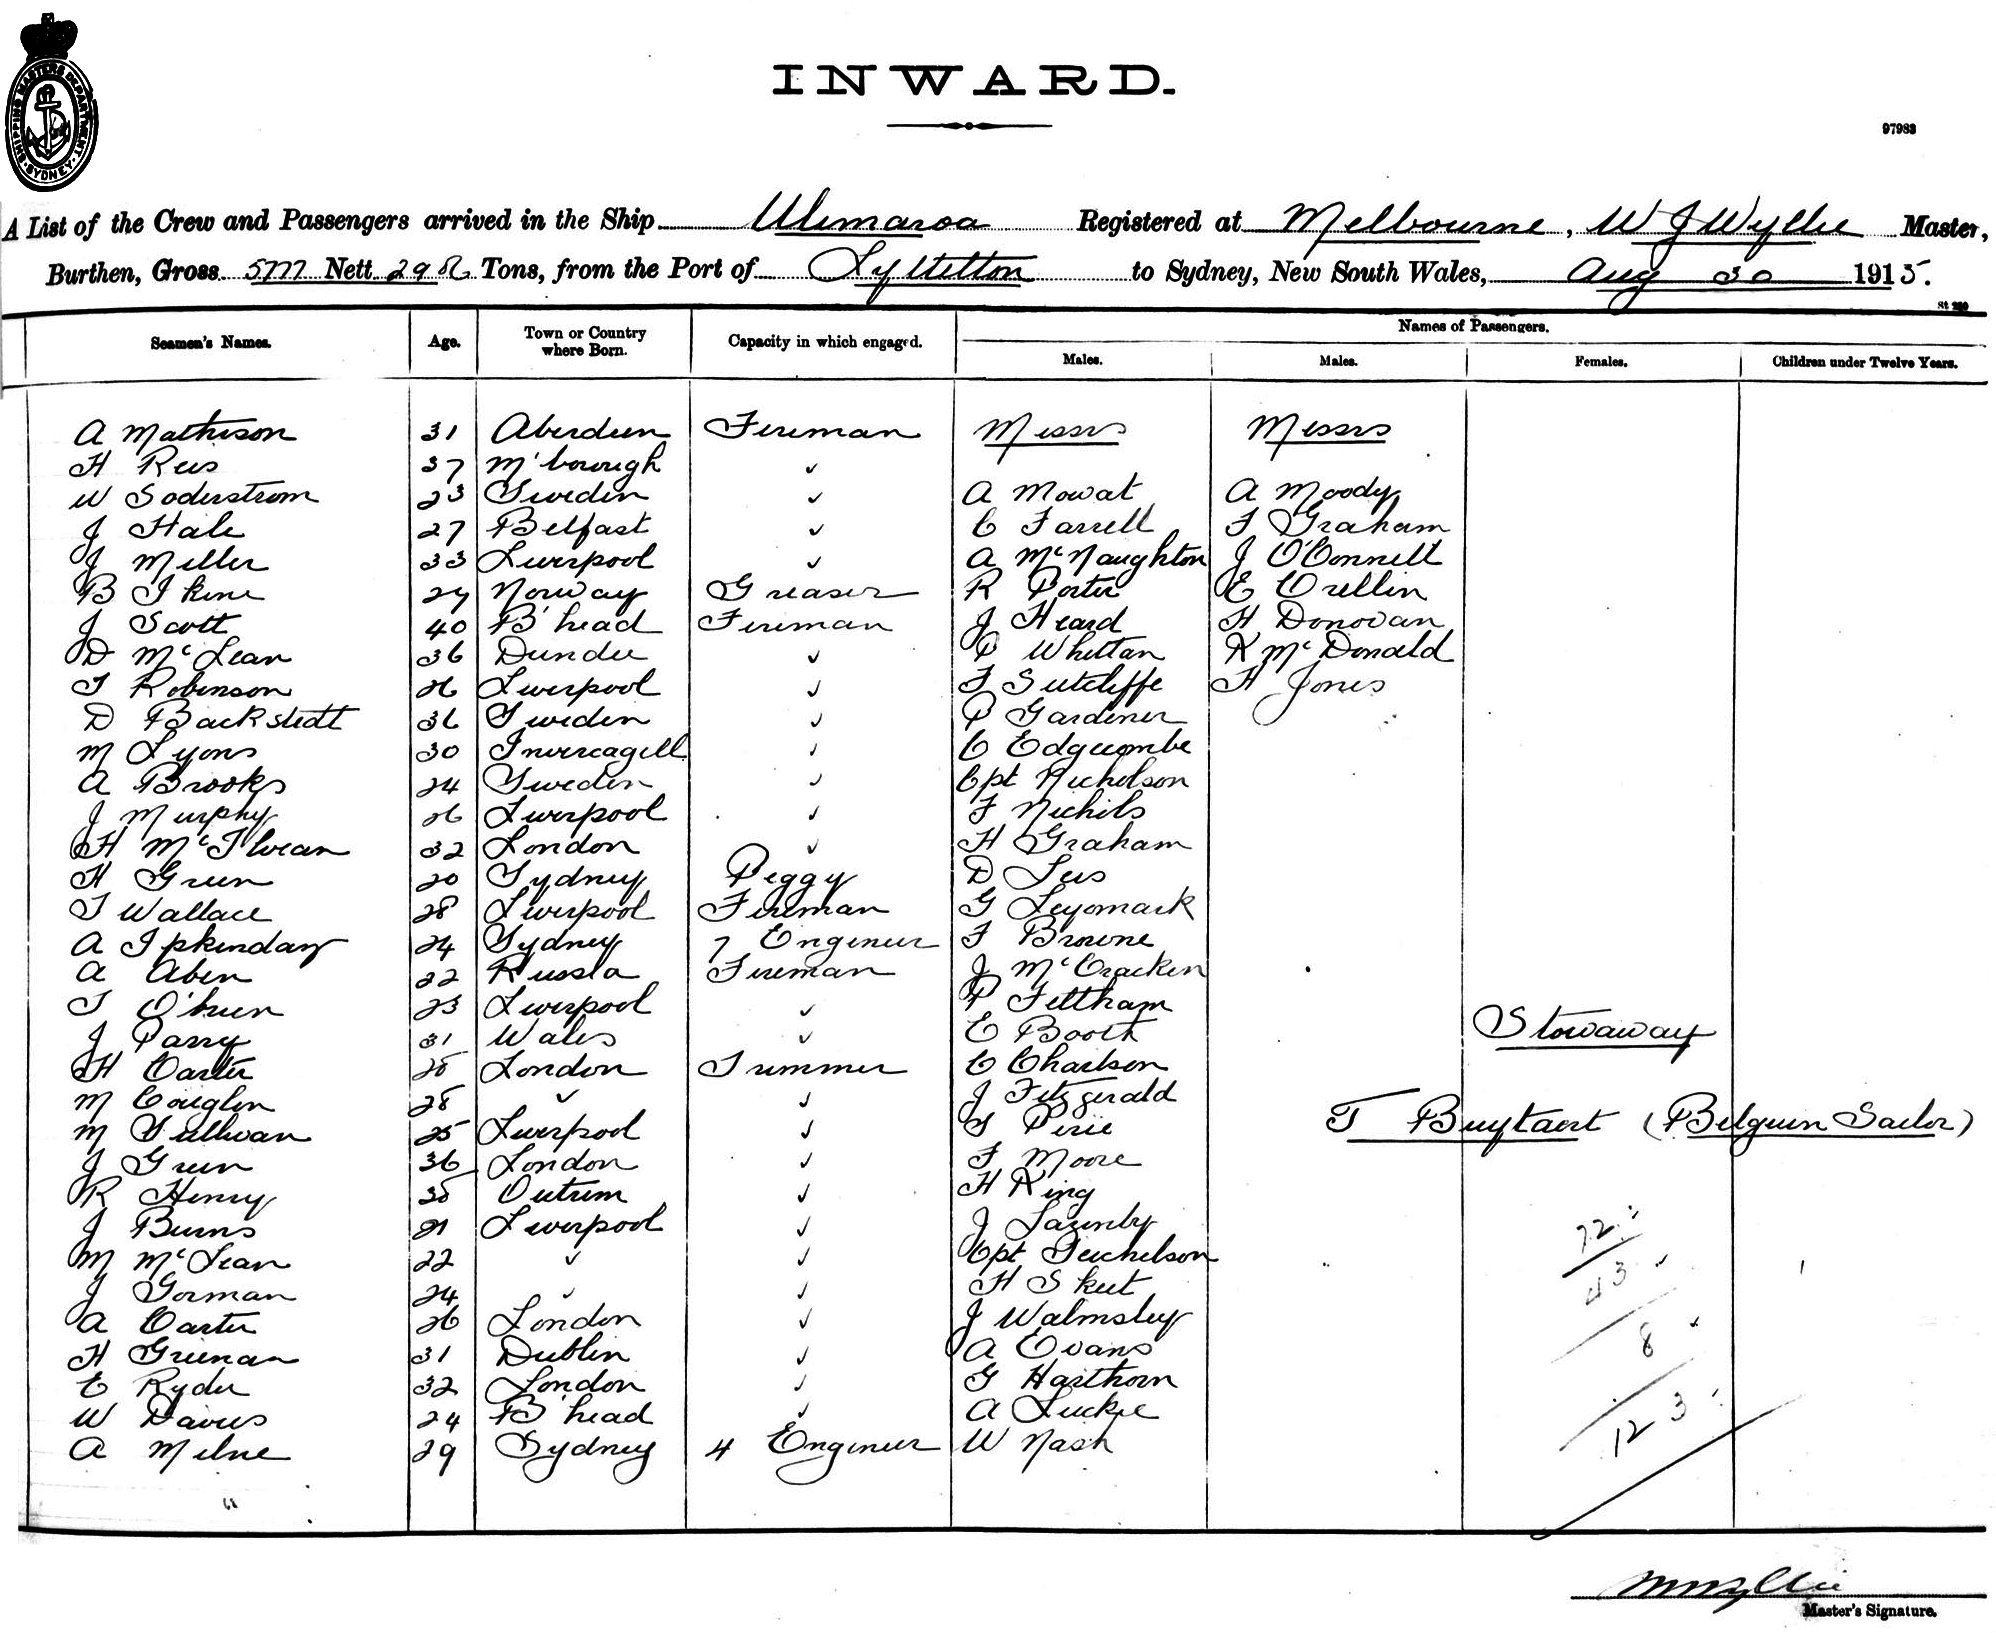 SHIPPING MASTERS DEPARTMENT. SYDNEY.
INWARD.
97983
A List of the Crew and Passengers arrived in the Ship Ulimaroa Registered at Melbourne, W J Wyllie Master,
Burthen, Gross 5777 Nett Tons, from the Port of Lyttelton to Sydney, New South Wales, Aug 30 1915.
Seamen's Names. Age. Town or Country where Born. Capacity in which engaged. Names of Passengers.
Males. Males. Females. Children under Twelve Years.
A Mathison 31 Aberdeen Fireman Messrs Messrs
H Rees 37 M'borough ✓
W Soderstrom 23 Sweden ✓ A Mowat A Moody
J Hale 27 Belfast ✓ C Farrell F Graham
J Miller 33 Liverpool ✓ A McNaughton J O'Connell
B 27 Norway Greaser R Porter E Crellin
J Scott 40 B'head Fireman J Heard H Donovan
D McLean 36 Dundee ✓ P Whittan K McDonald
T Robinson 26 Liverpool ✓ F Sutcliffe H Jones
D Backstedt 36 Sweden ✓ P Gardiner
M Lyons 30 Invercagill ✓ C Edgcombe
A Brooks 24 Sweden ✓ Cpt Nicholson
J Murphy 26 Liverpool ✓ F Nichils
H McIlvean 32 London ✓ H Graham
H Green 20 Sydney Peggy D Lees
T Wallace 28 Liverpool Fireman G
A 24 Sydney 7 Engineer F Browne
A Aben 22 Russia Fireman J McCracken
T O'brien 23 Liverpool ✓ P Feltham
J Parry 31 Wales ✓ E Booth Stowaway
H Carter London Trimmer C Charlson
M Couglin 28 ✓ ✓ J Fitzgerald
M Sullivan 25 Liverpool ✓ Pirie T Buytaert (Belguin Sailor)
J Green 36 London ✓ F Moore
R Henry Outrim ✓ H King
J Burns 21 Liverpool ✓ J
M McLean 22 ✓ ✓ Cpt
J Gorman 24 ✓ ✓ H Skeet
A Carter 26 London ✓ J Walmsley
H Greenan 31 Dublin ✓ A Evans
E Ryder 32 London ✓ G Harthorn
W Davies 24 B'head ✓ A Luckie
A Milne 29 Sydney 4 Engineer W Nash
72
43
8
123
Master's Signature.